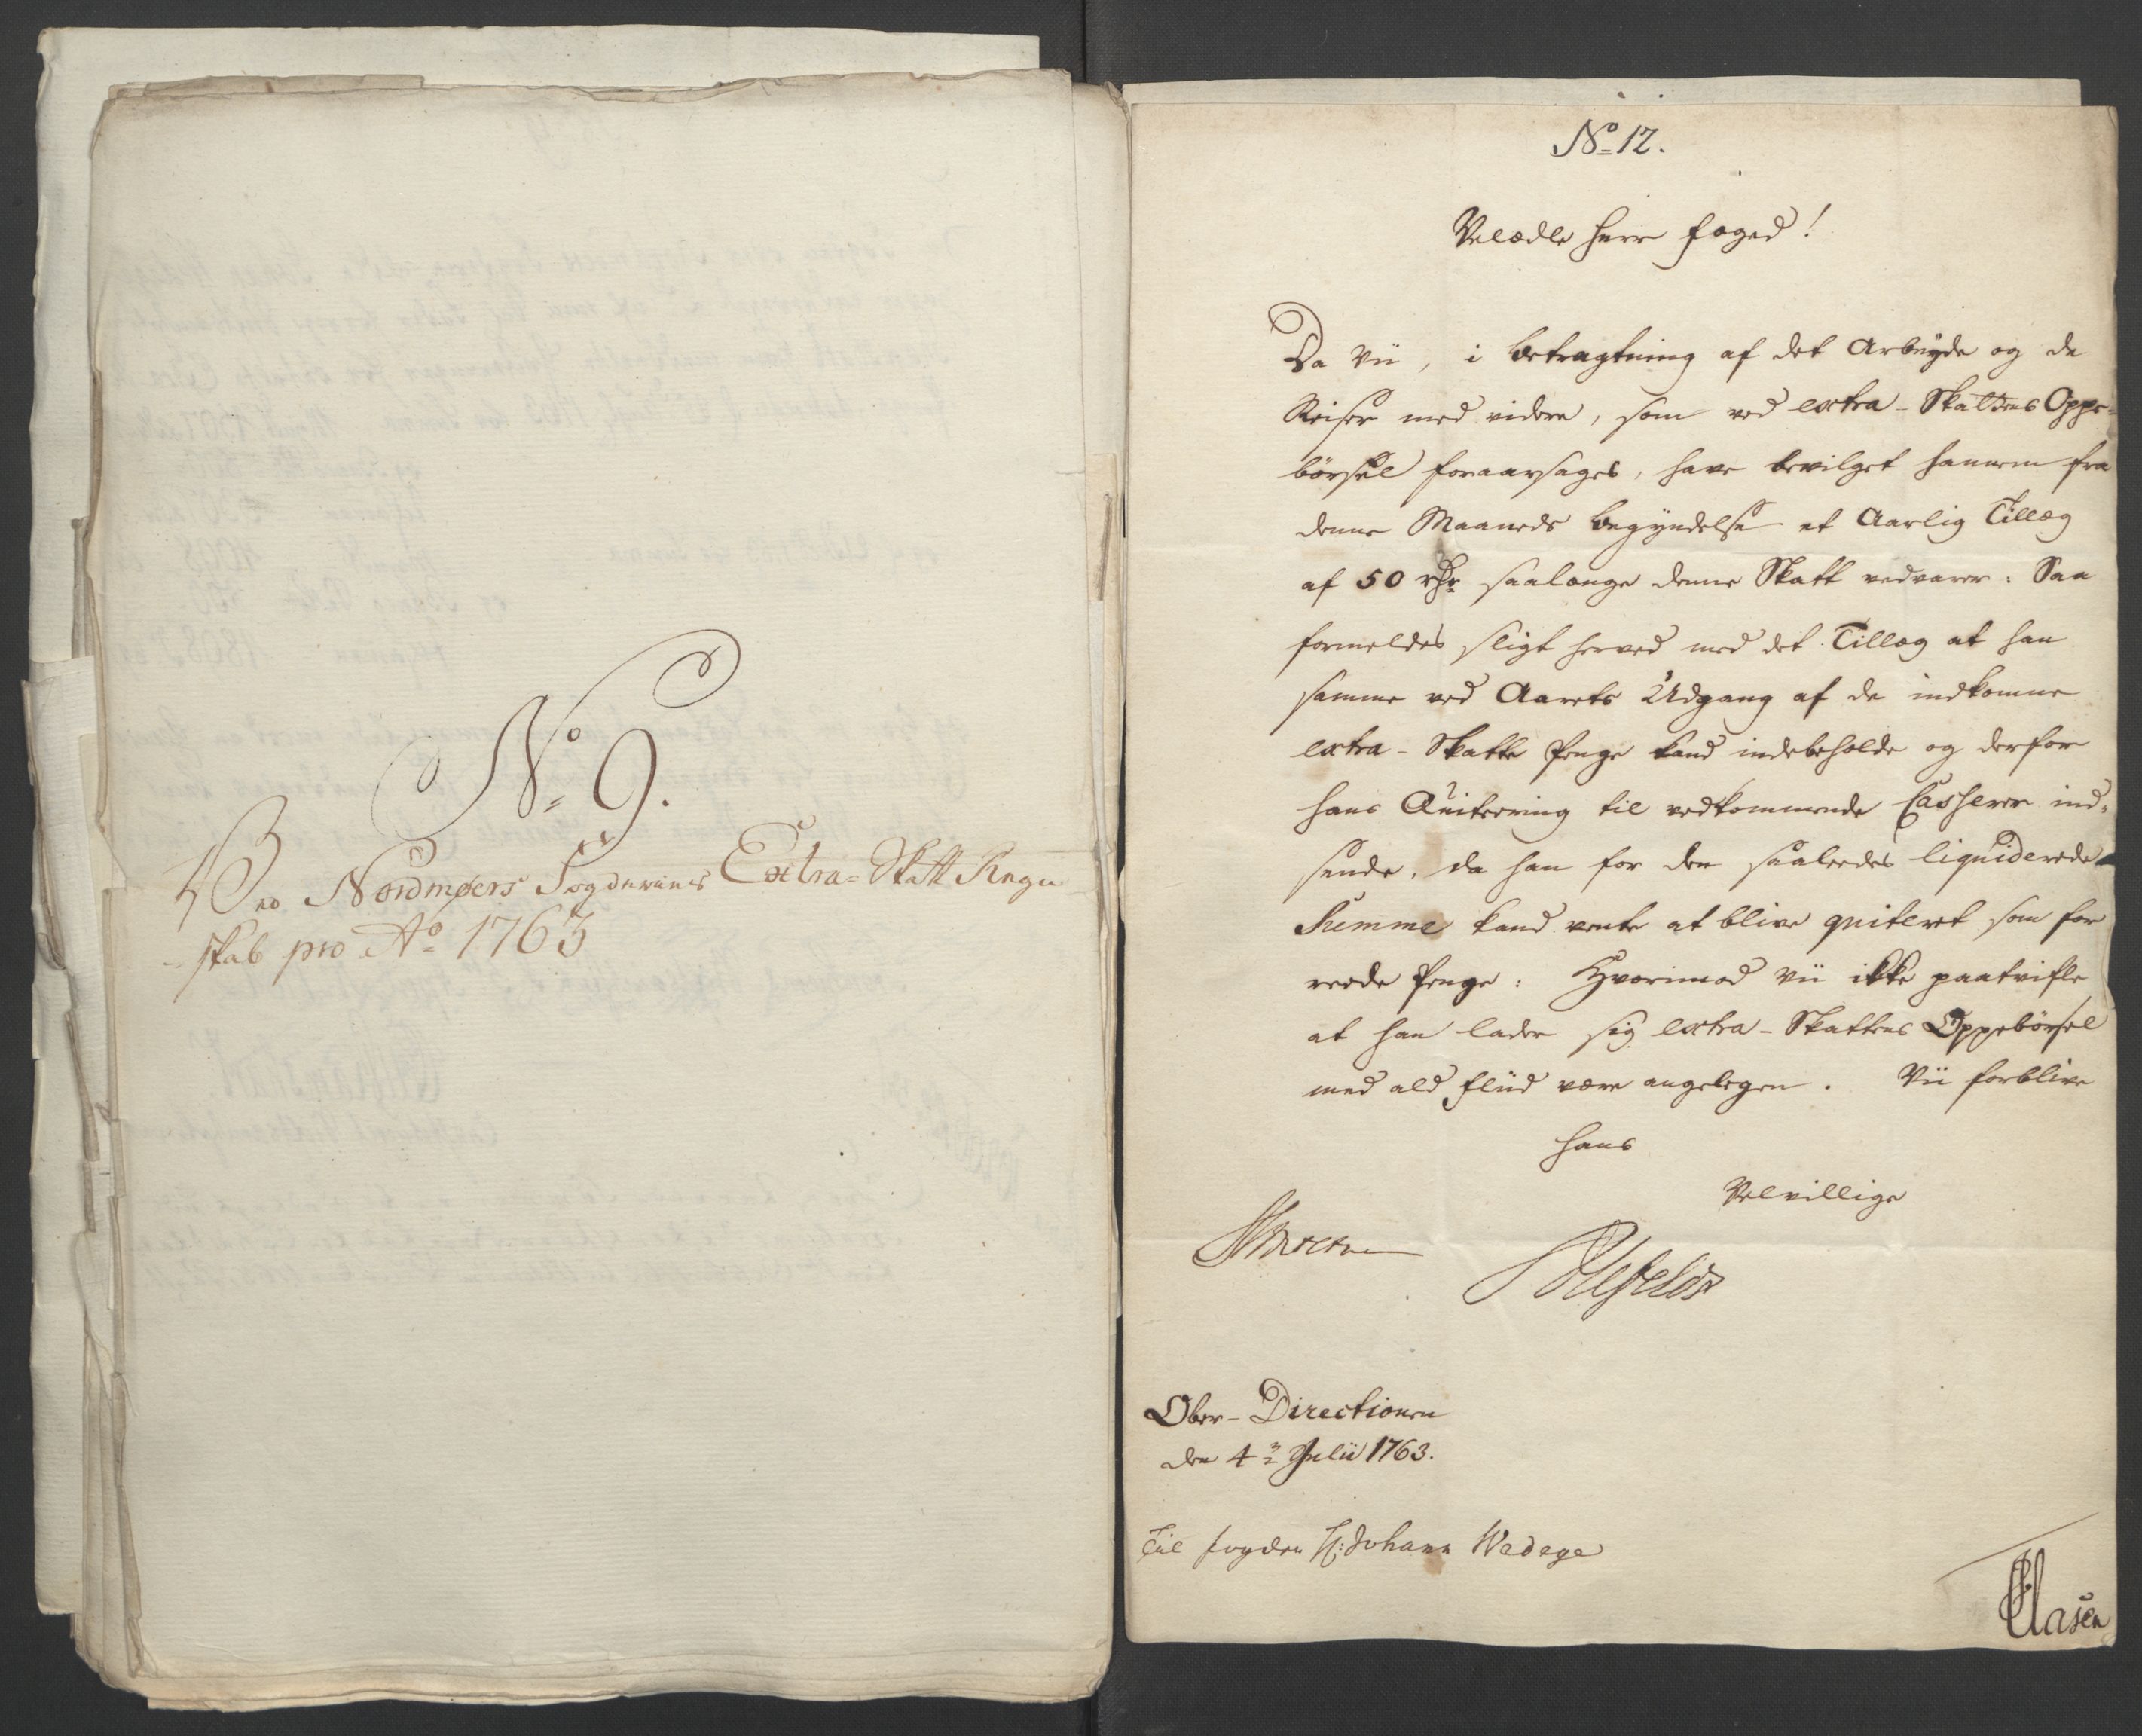 No 9.
Pro Nordmøers Fogderies Extra-Skatt Regn-
skab pro Ao 1763
No 12.
Velædle Herr Foged!
Da vii, i betragtning af det Arbeyde og de
Reiser med videre, som ved extra-Skattens Oppe-
börsel foraarsages, have bevilget hannem fra
denne Maaneds begyndelse et Aarlig Tillæg
af 50 rdr saalænge denne Skatt vedvarer: Saa
formeldes sligt herved med det Tillæg at han
samme ved Aarets Udgang af de indkomne
extra-Skatte Penge kand indebeholde og derfor
hans Quitering til vedkommende Casserer ind-
sende, da han for den saaledes liquiderede
Summe kand vente at blive quiteret som for
reede Penge: Hvorimod vii ikke paatvifle
at han lader sig extra-Skattens Oppebörsel
med ald fliid være angelegen. Vii forblive
hans
Velvillige
Ober-Directionen
den 4de Julii 1763.
Til fogden Hr: Johann Wedege
Clasen